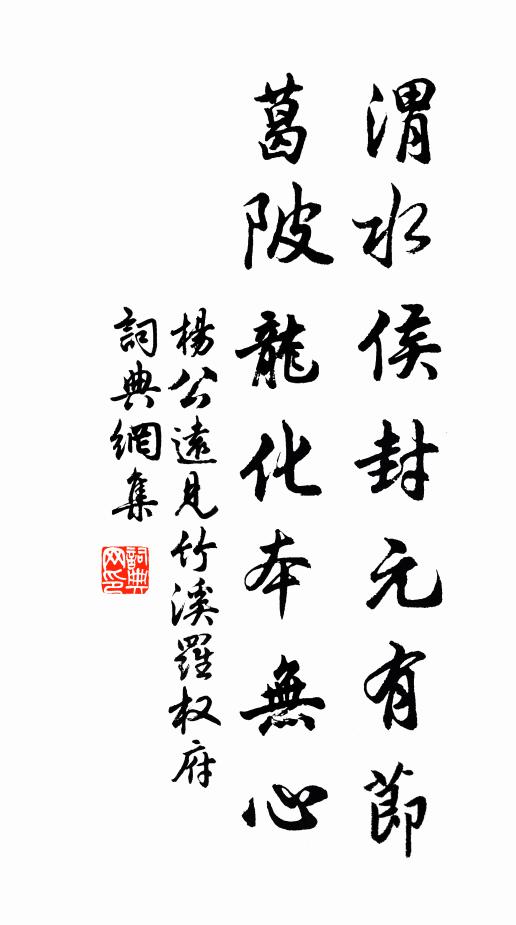 渭水侯封元有節
葛陂龍化本無心
楊公遠見竹溪羅权府
詞典網集
詞典网印